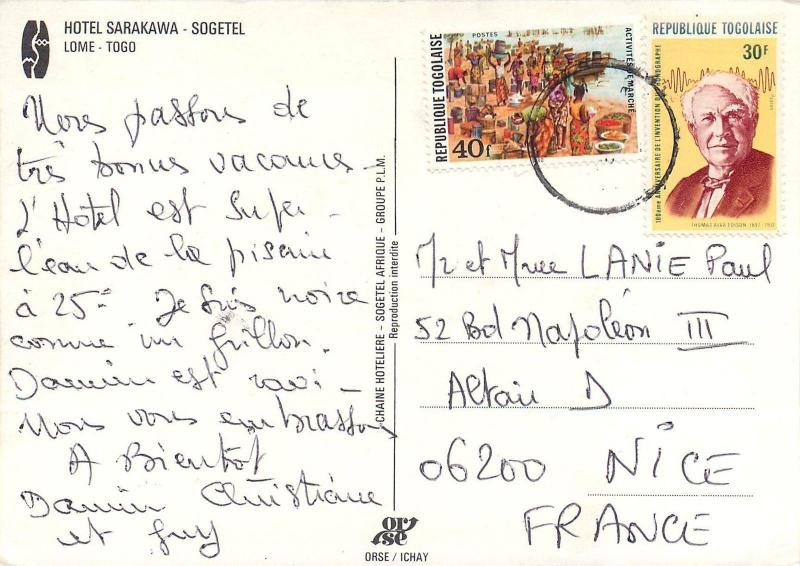 HOTEL SARAKAWA - SOGETEL
LOME - TOGO
Nous passons de
très bonnes vacances -
L'Hotel est super -
l'eau de la piscine
à 25° Je suis noire
comme un grillon.
Damien est ravi -
Nous vous embrassons
A Bientôt
Damien Christiane
et Guy
CHAINE HOTELIERE - SOGETEL AFRIQUE - GROUPE P.L.M.
Reproduction interdite
orse
ORSE / ICHAY
REPUBLIQUE TOGOLAISE
POSTES
ACTIVITÉS DE MARCHÉ
40f
REPUBLIQUE TOGOLAISE
30F
Postes
100ème ANNIVERSAIRE DE L'INVENTION DU PHONOGRAPHE
THOMAS ALVA EDISON
Mr et Mme LANIE Paul
52 Bd Napoléon III
Altair D
06200 NICE
FRANCE